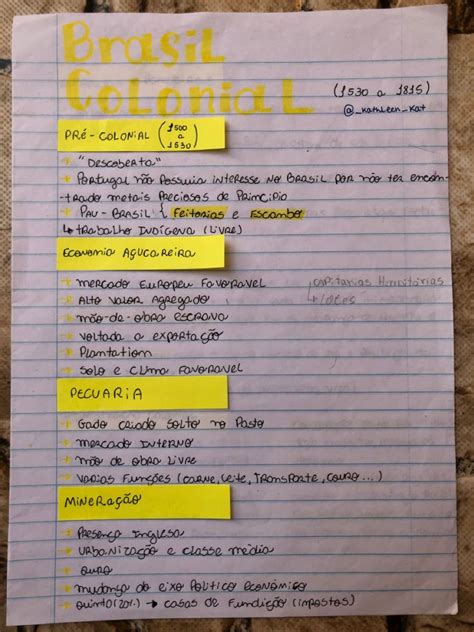 Brasil
Colonial
(1530 a 1815)
@_kathleen_kat
PRÉ-COLONIAL (1500 a 1530)
+ "DESCOBERTA"
+ Portugal não Possuia interesse no Brasil por não ter encon-
trado metais Preciosos de Principio
+ Pau-Brasil { Feitorias e Escambo
↳ trabalho Indígena (Livre)
Economia Açucareira
+ mercado Europeu Favoravel
, capitanias Hereditárias
+ Alto valor Agregado
→ lotes
+ mão-de-obra escrava
+ voltada a exportação
+ Plantation
+ Solo e Clima Favoravel
PECUARIA
+ Gado criado solto no Pasto
+ mercado Interno
+ mão de obra livre
+ varias Funções (carne, leite, transporte, couro...)
Mineração
+ Presença Inglesa
+ urbanização e classe média
+ ouro
+ mudança do eixo Político Econômico
+ quinto (20%) → casas de Fundição (impostos)